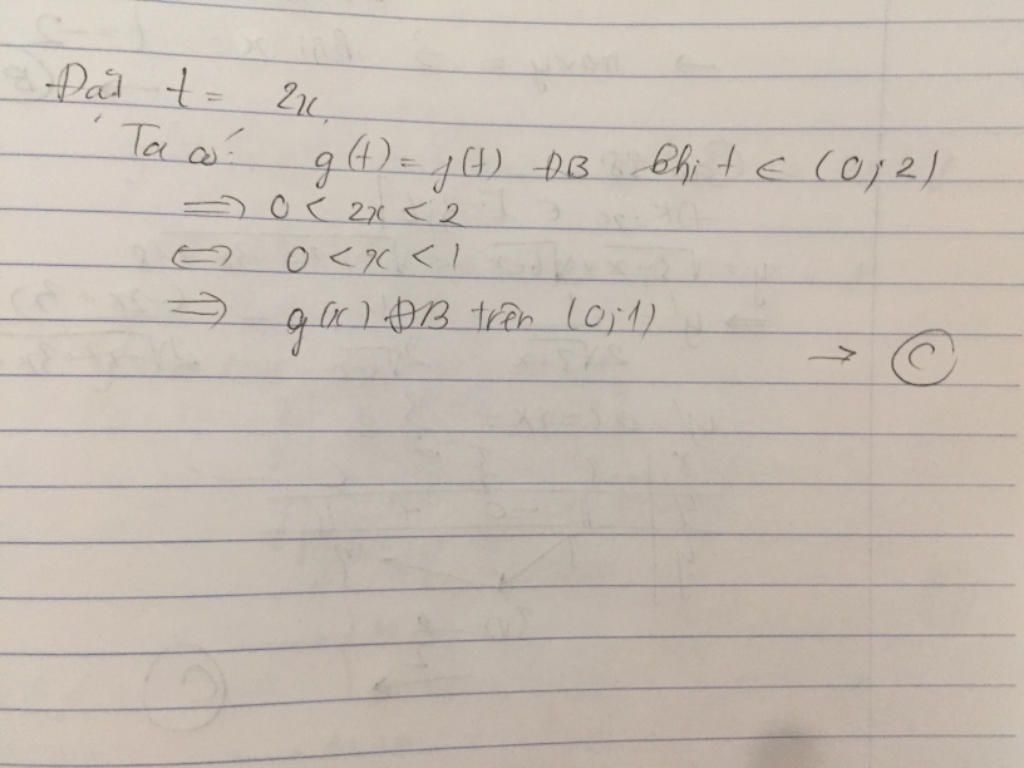 Đặt t = 2x.
Ta có: g(t) = f(t) ĐB khi t ∈ (0; 2)
⇒ 0 < 2x < 2
⇔ 0 < x < 1
⇒ g(x) ĐB trên (0; 1)
→ C